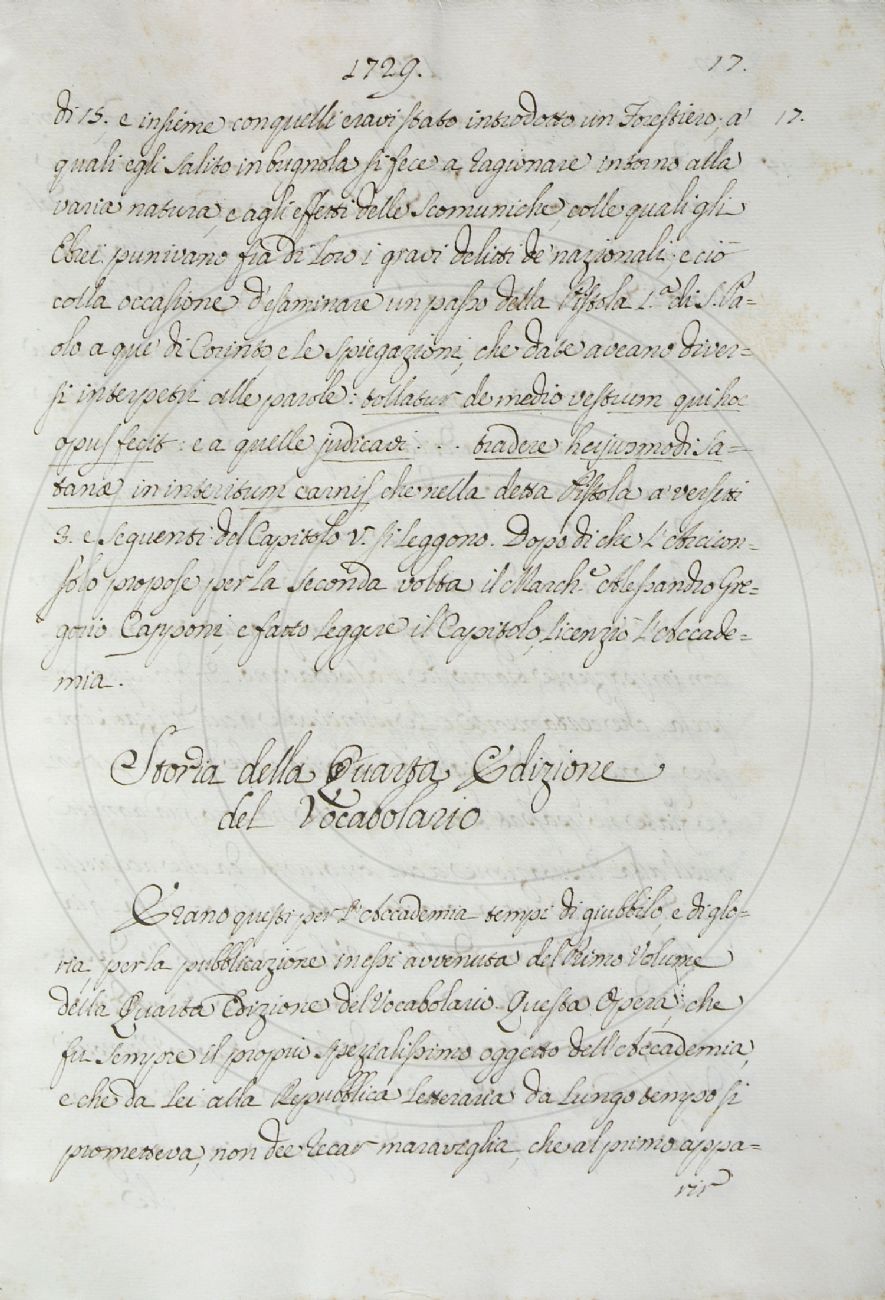 1729.
17.
di 15, e insieme con quelli eravi stato introdotto un Forestiero, a' 17.
quali egli salito in bugnola si fece a ragionare intorno alla
varia natura, e agli effetti delle Scomuniche, colle quali gli
Ebrei punivano fra di loro i gravi delitti de' nazionali; e ciò
colla occasione d'esaminare un passo della Pistola 1.ª di S. Pa=
olo a que' di Corinto, e le spiegazioni, che date aveano diver=
si interpetri alle parole: tollatur de medio vestrum qui hoc
opus fecit: e a quelle judicavi . . . tradere hujusmodi Sa=
tanæ in interitum carnis che nella detta Pistola a' verseti
3. e seguenti del Capitolo V. si leggono. Dopo di che l'Arcicon=
solo propose per la seconda volta il March.e Alessandro Gre=
gorio Capponi, e fatto leggere il Capitolo, licenziò l'Accade=
mia.
Storia della Quarta Edizione
del Vocabolario
Erano questi per l'Accademia tempi di giubbilo, e di glo=
ria, per la pubblicazione in essi avvenuta del Primo Volume
della Quarta Edizione del Vocabolario. Questa Opera, che
fu sempre il proprio spezialissimo oggetto dell'Accademia,
e che da lei alla Repubblica Letteraria da lungo tempo si
prometteva, non dee recar maraviglia, che al primo appa=
rir